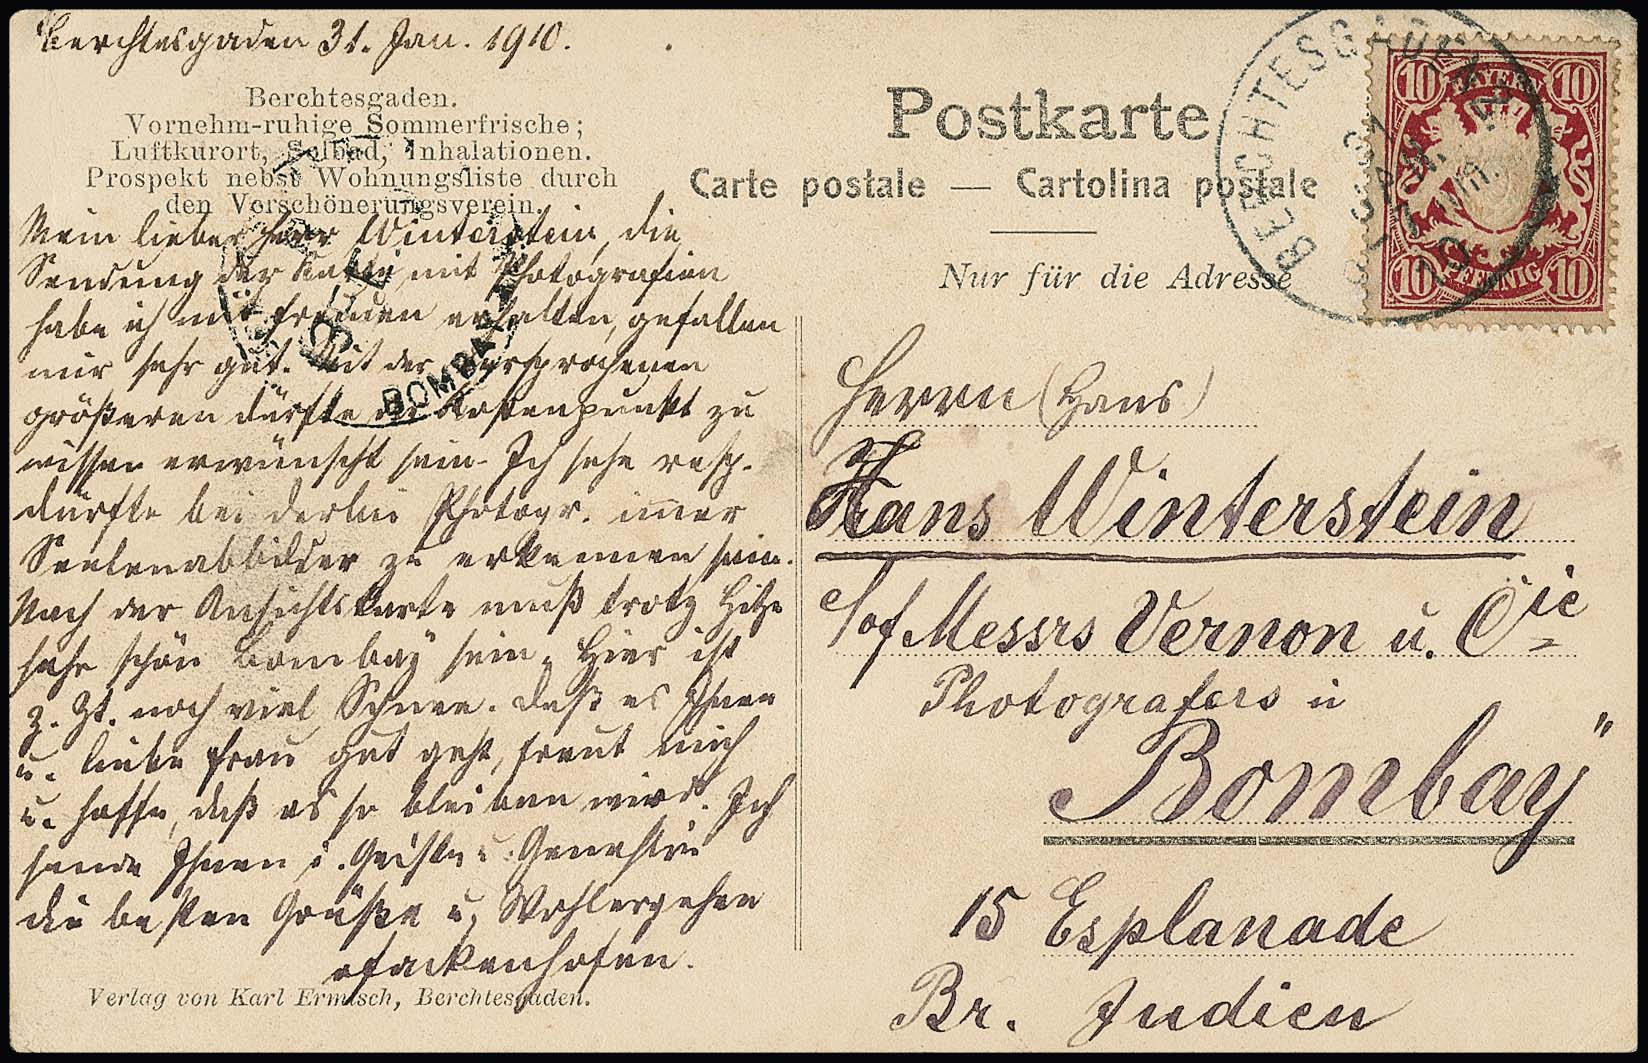 Berchtesgaden 31. Jan. 1910.
Berchtesgaden.
Vornehm-ruhige Sommerfrische;
Luftkurort, Solbad, Inhalationen.
Prospekt nebst Wohnungsliste durch
den Verschönerungsverein.
Mein lieber Herr Winterstein, die
Sendung der Karte mit Photografien
habe ich mit Freuden erhalten, gefallen
mir sehr gut. Mit der versprochenen
größeren dürfte der Kostenpunkt zu
wissen erwünscht sein. Ich sehe resp.
dürfte bei derlei Photogr. immer
Seelenabbilder zu erkennen sein.
Nach der Ansichtskarte muß trotz Hitze
sehr schön Bombay sein. Hier ist
z. Zt. noch viel Schnee. Daß es Ihnen
u. liebe Frau gut geht, freut mich
u. hoffe, daß es so bleiben wird. Ich
sende Ihnen i. Geiste u.
die besten Grüße u. Wohlergehen
Verlag von Karl Ermisch, Berchtesgaden.
Postkarte
Carte postale — Cartolina postale
Nur für die Adresse
BERCHTESGADEN
31 JAN.
10
10 BAYERN 10
10 PFENNIG 10
BOMBAY
Herrn (Hans)
Hans Winterstein
c/of Messrs Vernon u. Cie
Photografers in
Bombay"
15 Esplanade
Br. Indien